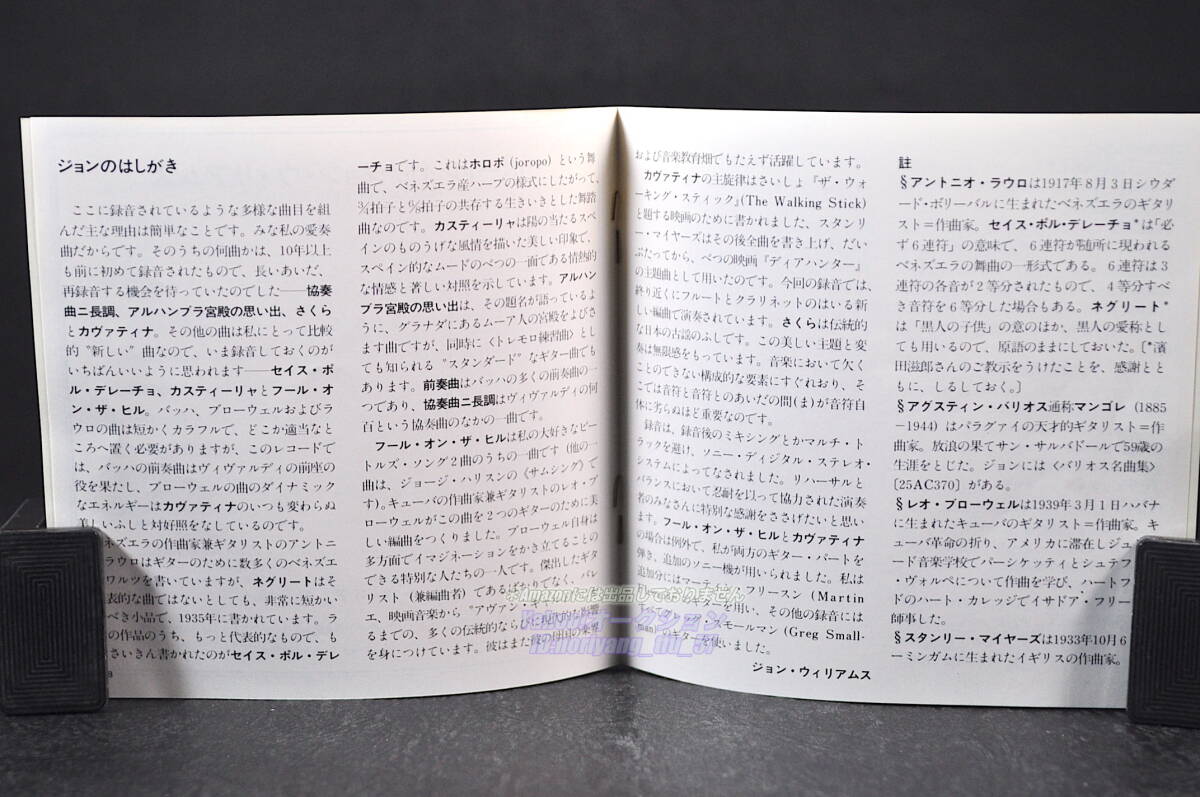 ジョンのはしがき
ここに録音されているような多様な曲目を組
んだ主な理由は簡単なことです。みな私の愛奏
曲だからです。そのうちの何曲かは、10年以上
も前に初めて録音されたもので、長いあいだ、
再録音する機会を待っていたのでした──協奏
曲ニ長調、アルハンブラ宮殿の思い出、さくら
とカヴァティナ。その他の曲は私にとって比較
的〝新しい〟曲なので、いま録音しておくのが
いちばんいいように思われます──セイス・ポ
ル・デレーチョ、カスティーリャとフール・オ
ン・ザ・ヒル。バッハ、ブローウェルおよびラ
ウロの曲は短かくカラフルで、どこか適当なと
ころへ置く必要がありますが、このレコードで
は、バッハの前奏曲はヴィヴァルディの前座の
役を果たし、ブローウェルの曲のダイナミック
なエネルギーはカヴァティナのいつも変わらぬ
美しいふしと対好照をなしているのです。
ネズエラの作曲家兼ギタリストのアントニ
ラウロはギターのために数多くのベネズエ
ワルツを書いていますが、ネグリートはそ
表的な曲ではないとしても、非常に短かい
べき小品で、1935年に書かれています。ラ
の作品のうち、もっと代表的なもので、も
さいきん書かれたのがセイス・ポル・デレ
ーチョです。これはホロポ (joropo) という舞
曲で、ベネズエラ産ハープの様式にしたがって、
¾拍子と⁶⁄₈拍子の共存する生きいきとした舞踏
曲なのです。カスティーリャは陽の当たるスペ
インのものうげな風情を描いた美しい印象で、
スペイン的なムードのべつの一面である情熱的
な情感と著しい対照を示しています。アルハン
ブラ宮殿の思い出は、その題名が語っているよ
うに、グラナダにあるムーア人の宮殿をよびさ
ます曲ですが、同時に〈トレモロ練習曲〉とし
ても知られる〝スタンダード〟なギター曲でも
あります。前奏曲はバッハの多くの前奏曲の一
つであり、協奏曲ニ長調はヴィヴァルディの何
百という協奏曲のなかの一曲です。
フール・オン・ザ・ヒルは私の大好きなビー
トルズ・ソング2曲のうちの一曲です（他の一
曲は、ジョージ・ハリスンの《サムシング》で
す)。キューバの作曲家兼ギタリストのレオ・ブ
ローウェルがこの曲を2つのギターのために美
しい編曲をつくりました。ブローウェル自身は
多方面でイマジネーションをかき立てることの
できる特別な人たちの一人です。傑出したギタ
リスト（兼編曲者）であるばかりでなく、バレ
エ、映画音楽から〝アヴァン・ギャ
るまで、多くの伝統的なら
を身につけています。彼はまた
および音楽教育畑でもたえず活躍しています。
カヴァティナの主旋律はさいしょ『ザ・ウォ
ーキング・スティック』(The Walking Stick)
と題する映画のために書かれました。スタンリ
ー・マイヤーズはその後全曲を書き上げ、だい
ぶたってから、べつの映画『ディアハンター』
の主題曲として用いたのです。今回の録音では、
終り近くにフルートとクラリネットのはいる新
しい編曲で演奏されています。さくらは伝統的
な日本の古謡のふしです。この美しい主題と変
奏は無限感をもっています。音楽において欠く
ことのできない構成的な要素にすぐれおり、そ
こでは音符と音符とのあいだの間(ま)が音符自
体に劣らぬほど重要なのです。
録音は、録音後のミキシングとかマルチ・ト
ラックを避け、ソニー・ディジタル・ステレオ・
システムによってなされました。リハーサルと
バランスにおいて忍耐を以って協力された演奏
者のみなさんに特別な感謝をささげたいと思い
ます。フール・オン・ザ・ヒルとカヴァティナ
の場合は例外で、私が両方のギター・パートを
弾き、追加のソニー機が用いられました。私は
追加分にはマーティン・フリースン (Martin
ギターを用い、その他の録音には
スモールマン (Greg Small-
man) ギターを使いました。
ジョン・ウィリアムス
註
§アントニオ・ラウロは1917年8月3日シウダ
ード・ボリーバルに生まれたベネズエラのギタリ
スト＝作曲家。セイス・ポル・デレーチョ*は「必
ず6連符」の意味で、6連符が随所に現われる
ベネズエラの舞曲の一形式である。6連符は3
連符の各音が2等分されたもので、4等分すべ
き音符を6等分した場合もある。ネグリート*
は「黒人の子供」の意のほか、黒人の愛称とし
ても用いるので、原語のままにしておいた。〔*濱
田滋郎さんのご教示をうけたことを、感謝とと
もに、しるしておく。〕
§アグスティン・バリオス通称マンゴレ (1885
-1944) はパラグァイの天才的ギタリスト＝作
曲家。放浪の果てサン・サルバドールで59歳の
生涯をとじた。ジョンには〈バリオス名曲集〉
[25AC370] がある。
§レオ・ブローウェルは1939年3月1日ハバナ
に生まれたキューバのギタリスト＝作曲家。キ
ューバ革命の折り、アメリカに滞在しジュ
ード音楽学校でパーシケッティとシュテフ
・ヴォルペについて作曲を学び、ハートフ
ドのハート・カレッジでイサドア・フリー
師事した。
§スタンリー・マイヤーズは1933年10月6
ーミンガムに生まれたイギリスの作曲家。
※Amazonには出品しておりません
Yahoo!オークション